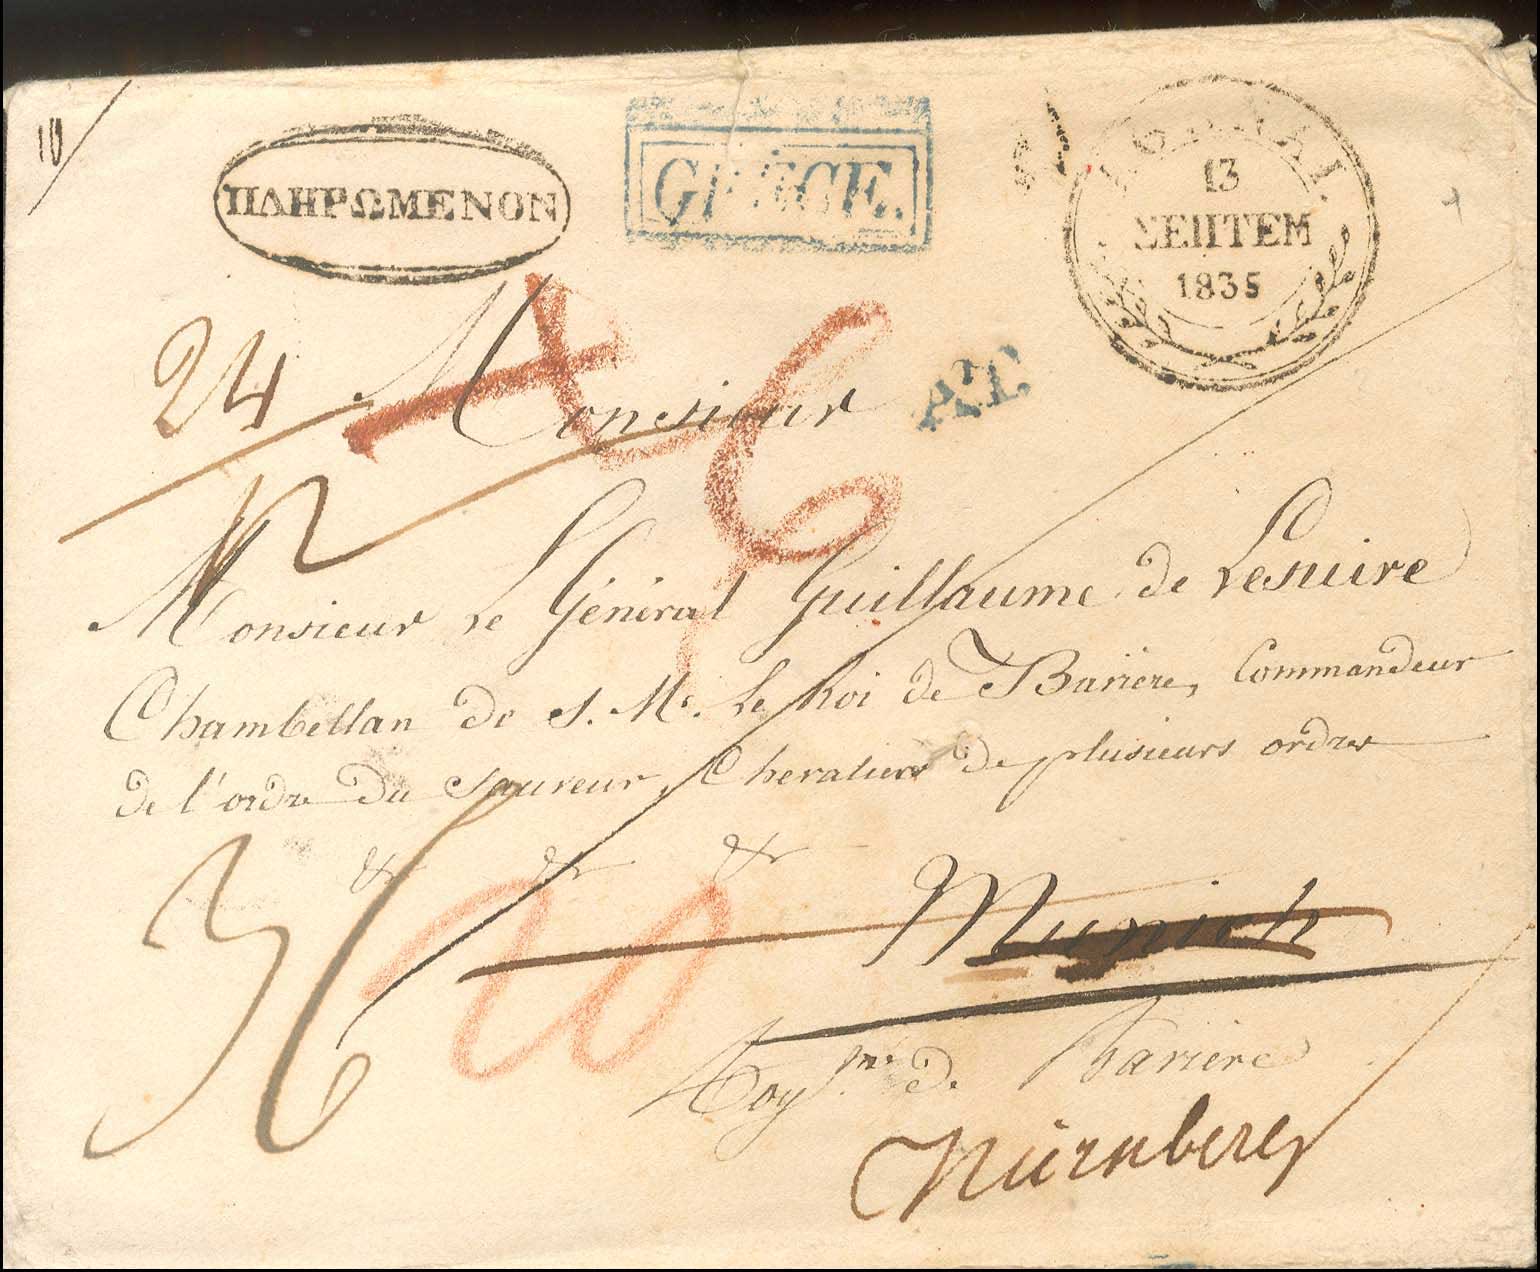 10
ΠΛΗΡΩΜΕΝΟΝ
GRÈCE.
13
ΣΕΠΤΕΜ
1835
24
6
Monsieur
Monsieur Le Général Guillaume de Lesuire
Chambellan de S. M. Le Roi de Bavière, Commandeur
de l'ordre du Sauveur, Chevalier de plusieurs ordres
& & &
36
Munich
Royme de Bavière
Nürnberg